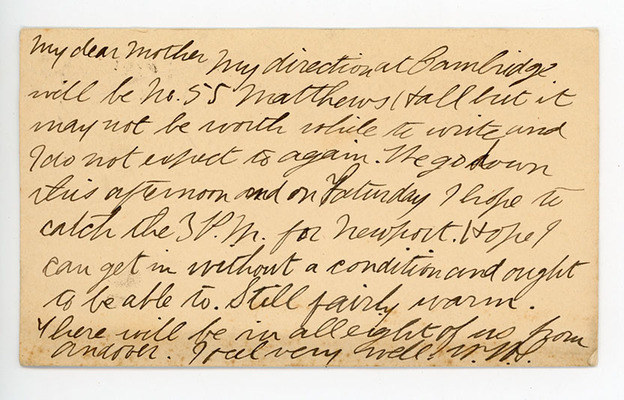 My dear Mother My direction at Cambridge
will be No. 55 Matthews Hall but it
may not be worth while to write and
I do not expect to again. We go down
this afternoon and on Saturday I hope to
catch the 3 P.M. for Newport. Hope I
can get in without a condition and ought
to be able to. Still fairly warm.
There will be in all eight of us from
Andover. I feel very well.